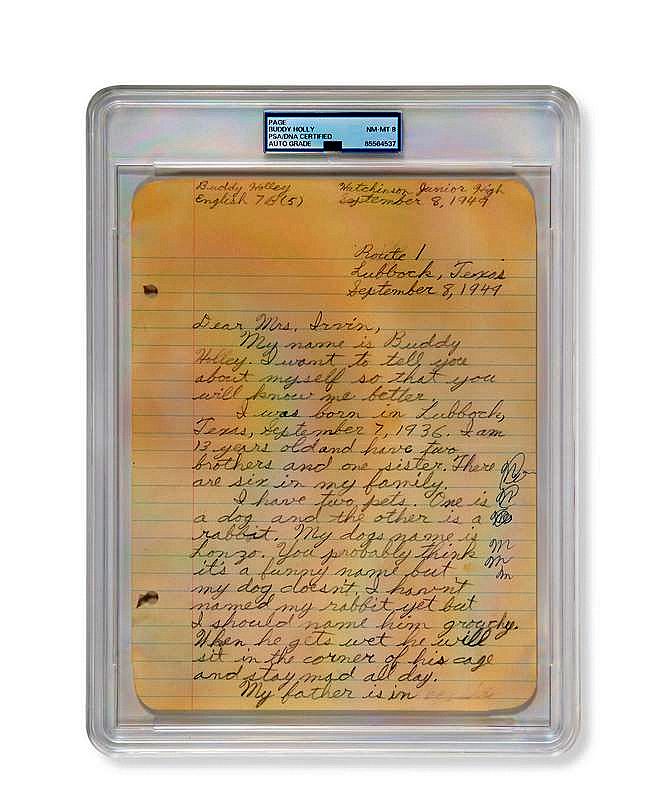 PAGE
BUDDY HOLLY NM-MT 8
PSA/DNA CERTIFIED
AUTO GRADE 85564537
Buddy Holley Hutchinson Junior High
English 7B(5) September 8, 1949
Route 1
Lubbock, Texas
September 8, 1949
Dear Mrs. Irvin,
My name is Buddy
Holley. I want to tell you
about myself so that you
will know me better.
I was born in Lubbock,
Texas, September 7, 1936. I am
13 years old and have two
brothers and one sister. There
are six in my family.
I have two pets. One is
a dog and the other is a
rabbit. My dogs name is
Lonzo. You probably think
it's a funny name but
my dog doesn't. I havn't
named my rabbit yet but
I should name him grouchy.
When he gets wet he will
sit in the corner of his cage
and stay mad all day.
My father is in